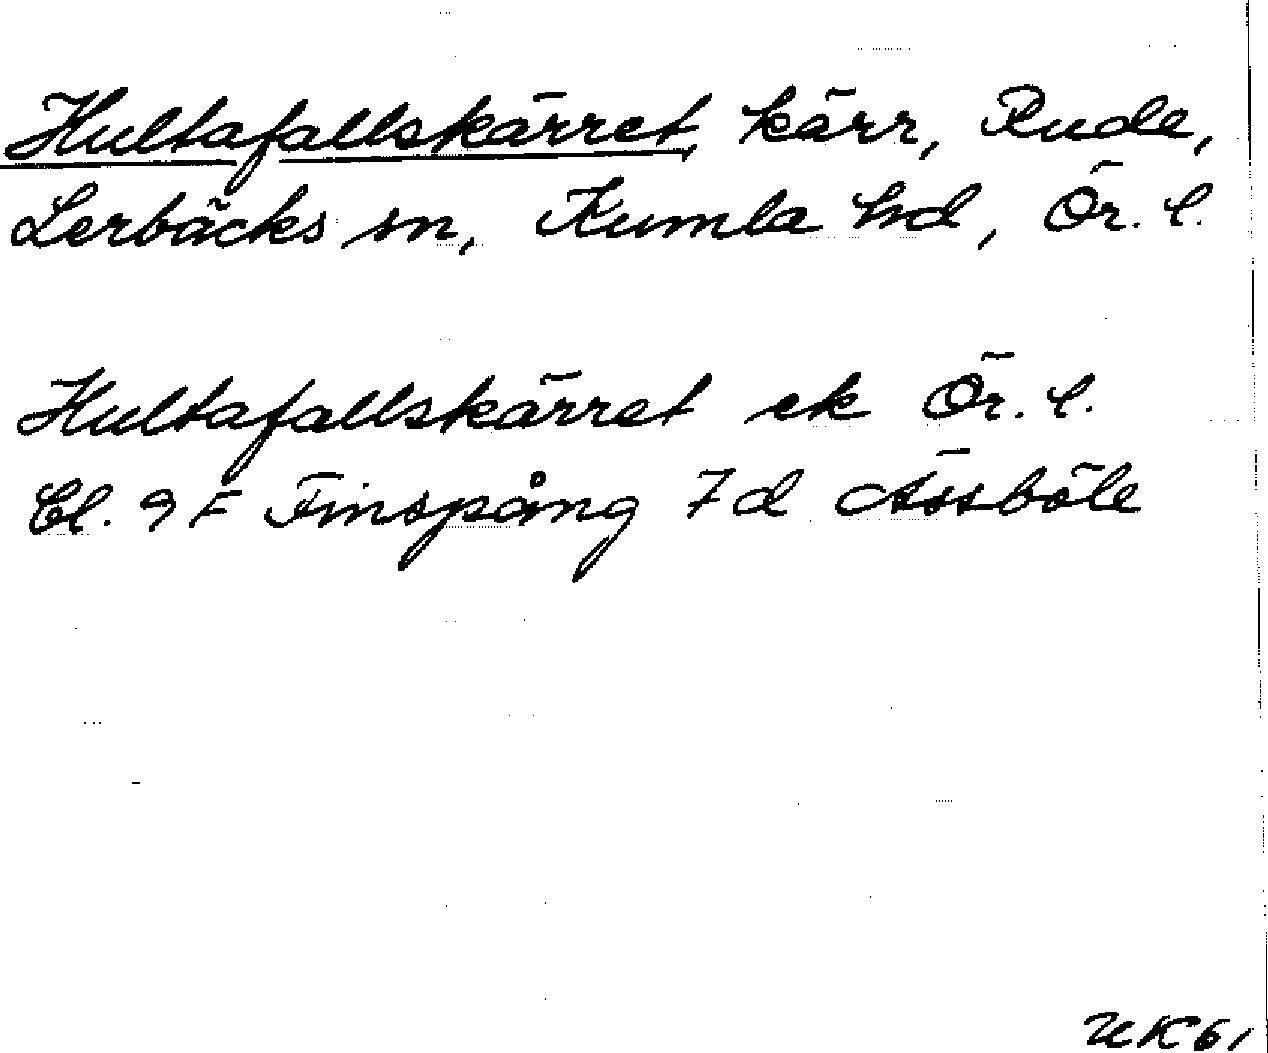 Hultafallskärret, kärr, Rude,
Lerbäcks sn, Kumla hd, Ör. l.
Hultafallskärret ek Ör. l.
Bl. 9 F Finspång 7 d Åsböle
UK 61